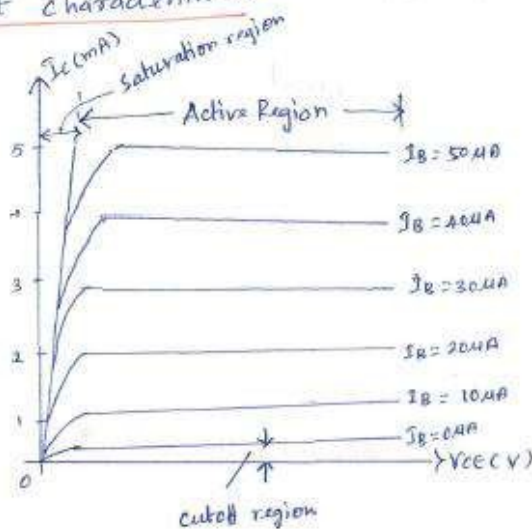 characteri
Ic(mA)
Saturation region
Active Region
5
IB = 50μA
IB = 40μA
3
IB = 30μA
2
IB = 20μA
1
IB = 10μA
IB = 0μA
0
VCE(V)
cutoff region